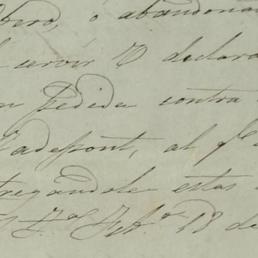 bero, o abandona
servir o declara
pedida contra
adepont, al
tregandole estas
Feb.º 18 de